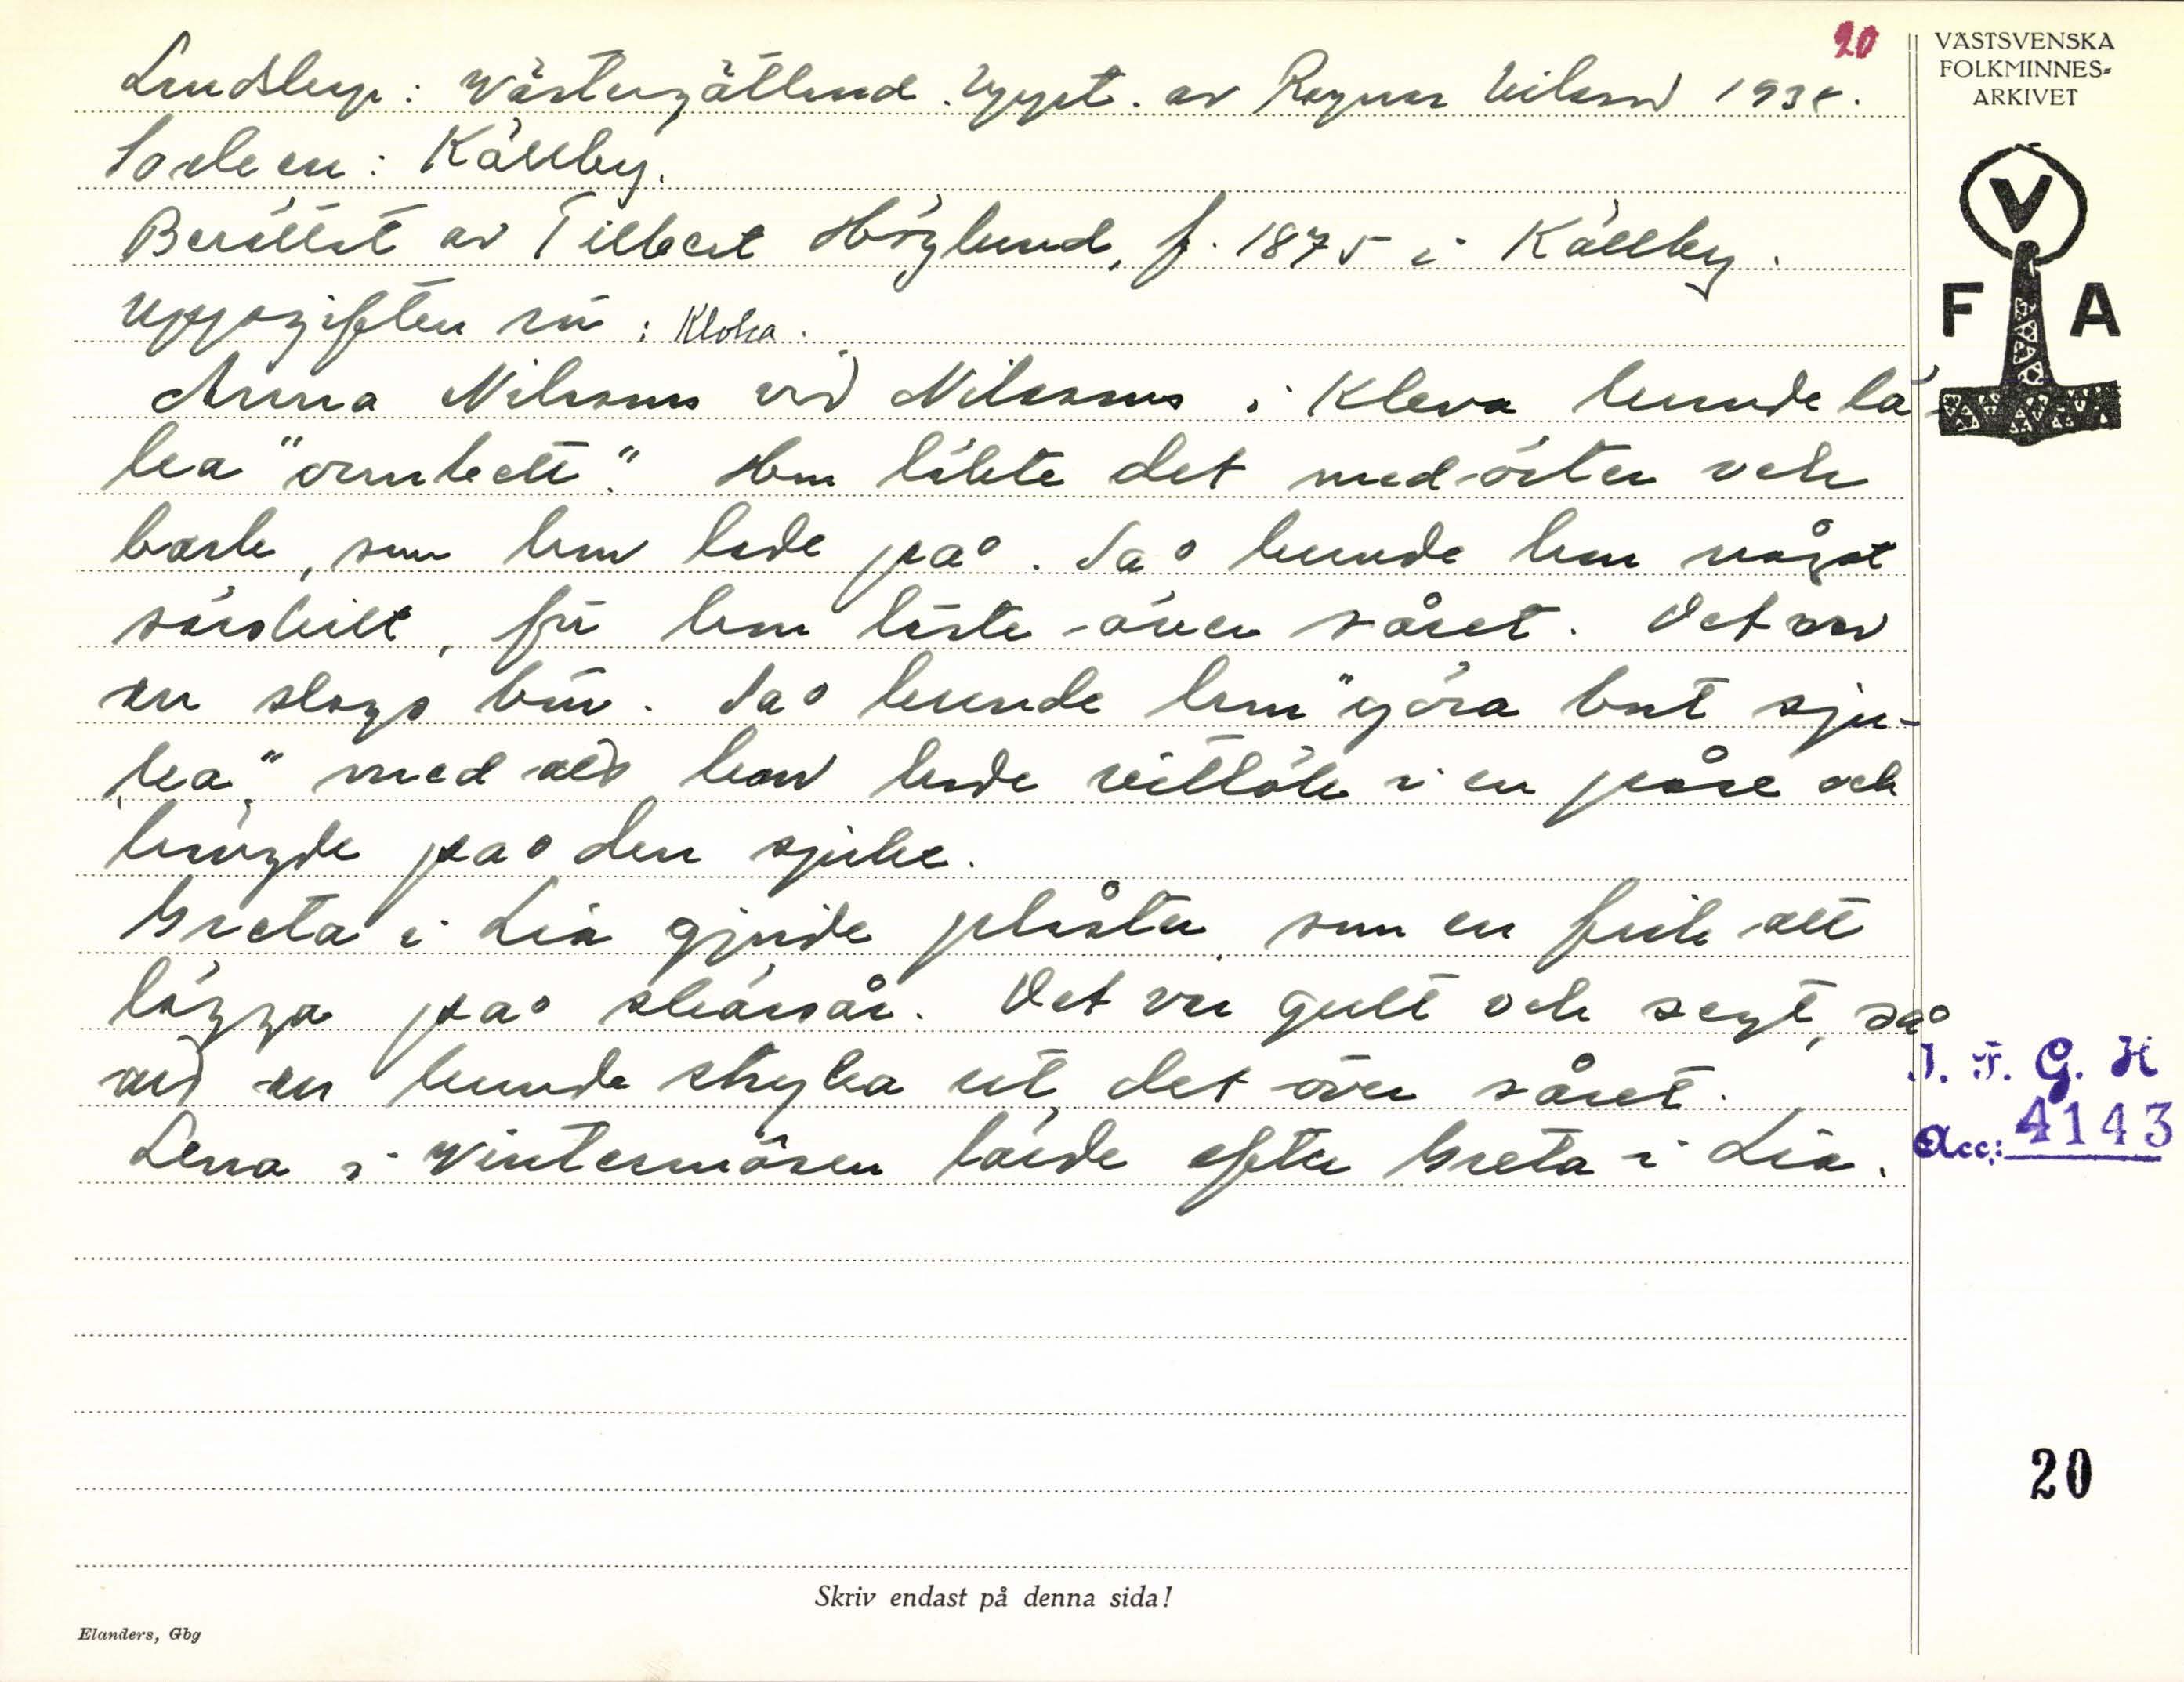 20
Landskap: Västergötland. Uppt. av Ragnar Nilsson 1938.
Socken: Källby.
Berättat av Filbert Höglund, f. 1875 i Källby.
Uppgiften rör: Kloka.
Anna Nilssons vid Nilssons i Kleva kunde lä-
ka "ormbett". Hon läkte det med örter och
bark, som hon lade på. Så kunde hon något
särskilt, för hon läste över såret. Det var
en slags bön. Så kunde hon "göra bot sju-
ka", med att hon lade vitlök i en påse och
hängde på den sjuke.
Greta i Lia gjorde plåster, som en fick att
lägga på skärsår. Det var gult och segt, så
att en kunde stryka ut det över såret.
Lena i Vintermåsen lärde efter Greta i Lia.
VÄSTSVENSKA
FOLKMINNES-
ARKIVET
V
F A
I. F. G. H
Acc: 4143
20
Skriv endast på denna sida!
Elanders, Gbg